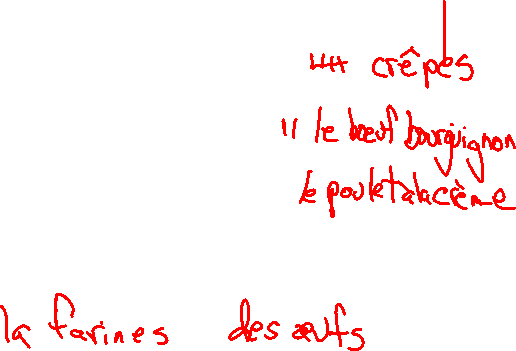 crêpes
le bœuf bourguignon
le poulet à la crème
la farines des œufs